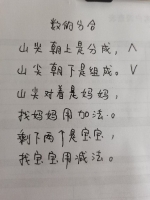 数的分合
山尖朝上是分成，∧
山尖朝下是组成。∨
山尖对着是妈妈，
找妈妈用加法。
剩下两个是宝宝，
找宝宝用减法。